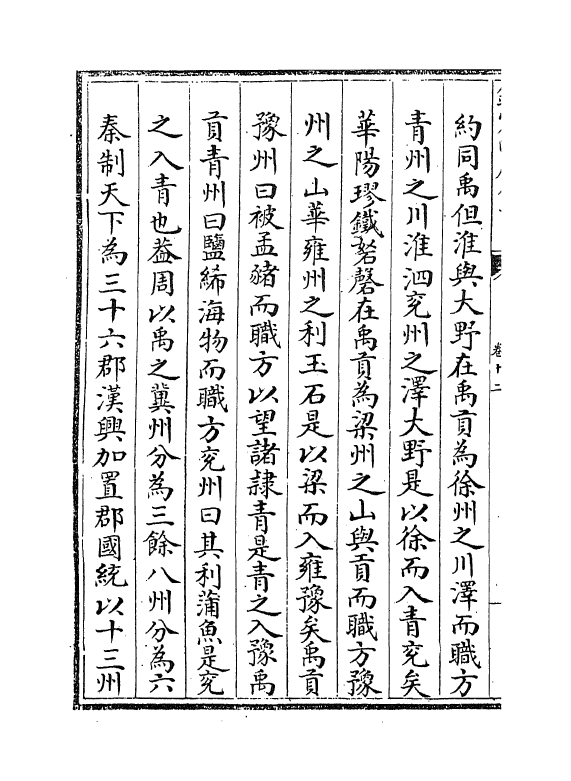 約同禹但淮與大野在禹貢為徐州之川澤而職方
青州之川淮泗兖州之澤大野是以徐而入青兖矣
華陽璆鐵砮磬在禹貢為梁州之山與貢而職方豫
州之山華雍州之利玉石是以梁而入雍豫矣禹貢
豫州曰被孟豬而職方以望諸隷青是青之入豫禹
貢青州曰鹽絺海物而職方兖州曰其利蒲魚是兖
之入青也葢周以禹之冀州分為三餘八州分為六
秦制天下為三十六郡漢興加置郡國統以十三州
卷十二